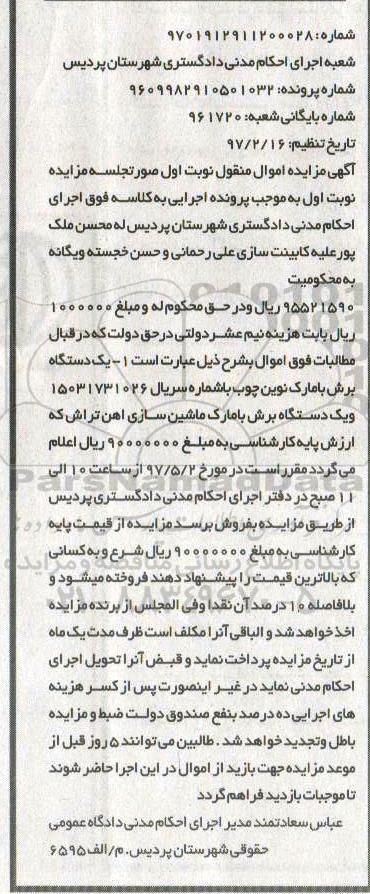 شماره: ۹۷۰۱۹۱۲۹۱۱۲۰۰۰۲۸
شعبه اجرای احکام مدنی دادگستری شهرستان پردیس
شماره پرونده: ۹۶۰۹۹۸۲۹۱۰۵۰۱۰۳۲
شماره بایگانی شعبه: ۹۶۱۷۲۰
تاریخ تنظیم: ۹۷/۲/۱۶
آگهی مزایده اموال منقول نوبت اول صورتجلسه مزایده
نوبت اول به موجب پرونده اجرایی به کلاسه فوق اجرای
احکام مدنی دادگستری شهرستان پردیس له محسن ملک
پور علیه کابینت سازی علی رحمانی و حسن خجسته ویگانه
به محکومیت
۹۵۵۲۱۵۹۰ ریال ودر حق محکوم له و مبلغ ۱۰۰۰۰۰۰
ریال بابت هزینه نیم عشر دولتی در حق دولت که در قبال
مطالبات فوق اموال بشرح ذیل عبارت است ۱- یک دستگاه
برش بامارک نوین چوب باشماره سریال ۱۵۰۳۱۷۳۱۰۲۶
ویک دستگاه برش بامارک ماشین سازی اهن تراش که
ارزش پایه کارشناسی به مبلغ ۹۰۰۰۰۰۰۰ ریال اعلام
می گردد مقرر است در مورخ ۹۷/۵/۲ از ساعت ۱۰ الی
۱۱ صبح در دفتر اجرای احکام مدنی دادگستری پردیس
از طریق مزایده بفروش برسد مزایده از قیمت پایه
کارشناسی به مبلغ ۹۰۰۰۰۰۰۰ ریال شرع و به کسانی
که بالاترین قیمت را پیشنهاد دهند فروخته میشود و
بلافاصله ۱۰ درصد آن نقدا وفی المجلس از برنده مزایده
اخذ خواهد شد و الباقی آنرا مکلف است ظرف مدت یک ماه
از تاریخ مزایده پرداخت نماید و قبض آنرا تحویل اجرای
احکام مدنی نماید در غیر اینصورت پس از کسر هزینه
های اجرایی ده درصد بنفع صندوق دولت ضبط و مزایده
باطل وتجدید خواهد شد. طالبین می توانند ۵ روز قبل از
موعد مزایده جهت بازید از اموال در این اجرا حاضر شوند
تا موجبات بازدید فراهم گردد
عباس سعادتمند مدیر اجرای احکام مدنی دادگاه عمومی
حقوقی شهرستان پردیس. م/الف ۶۵۹۵
ParsNamadData